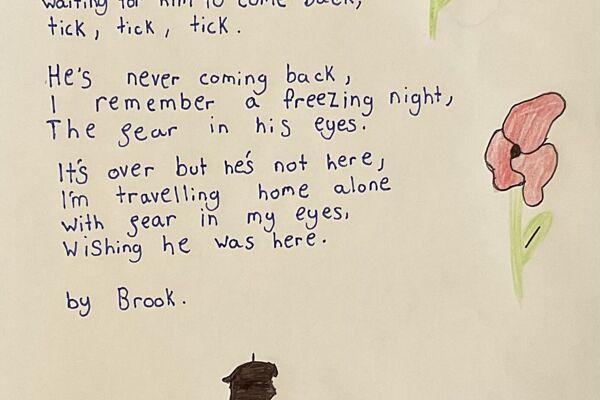 waiting for him to come back,
tick, tick, tick.
He's never coming back,
I remember a freezing night,
The fear in his eyes.
It's over but he's not here,
I'm travelling home alone
with fear in my eyes,
wishing he was here.
by Brook.